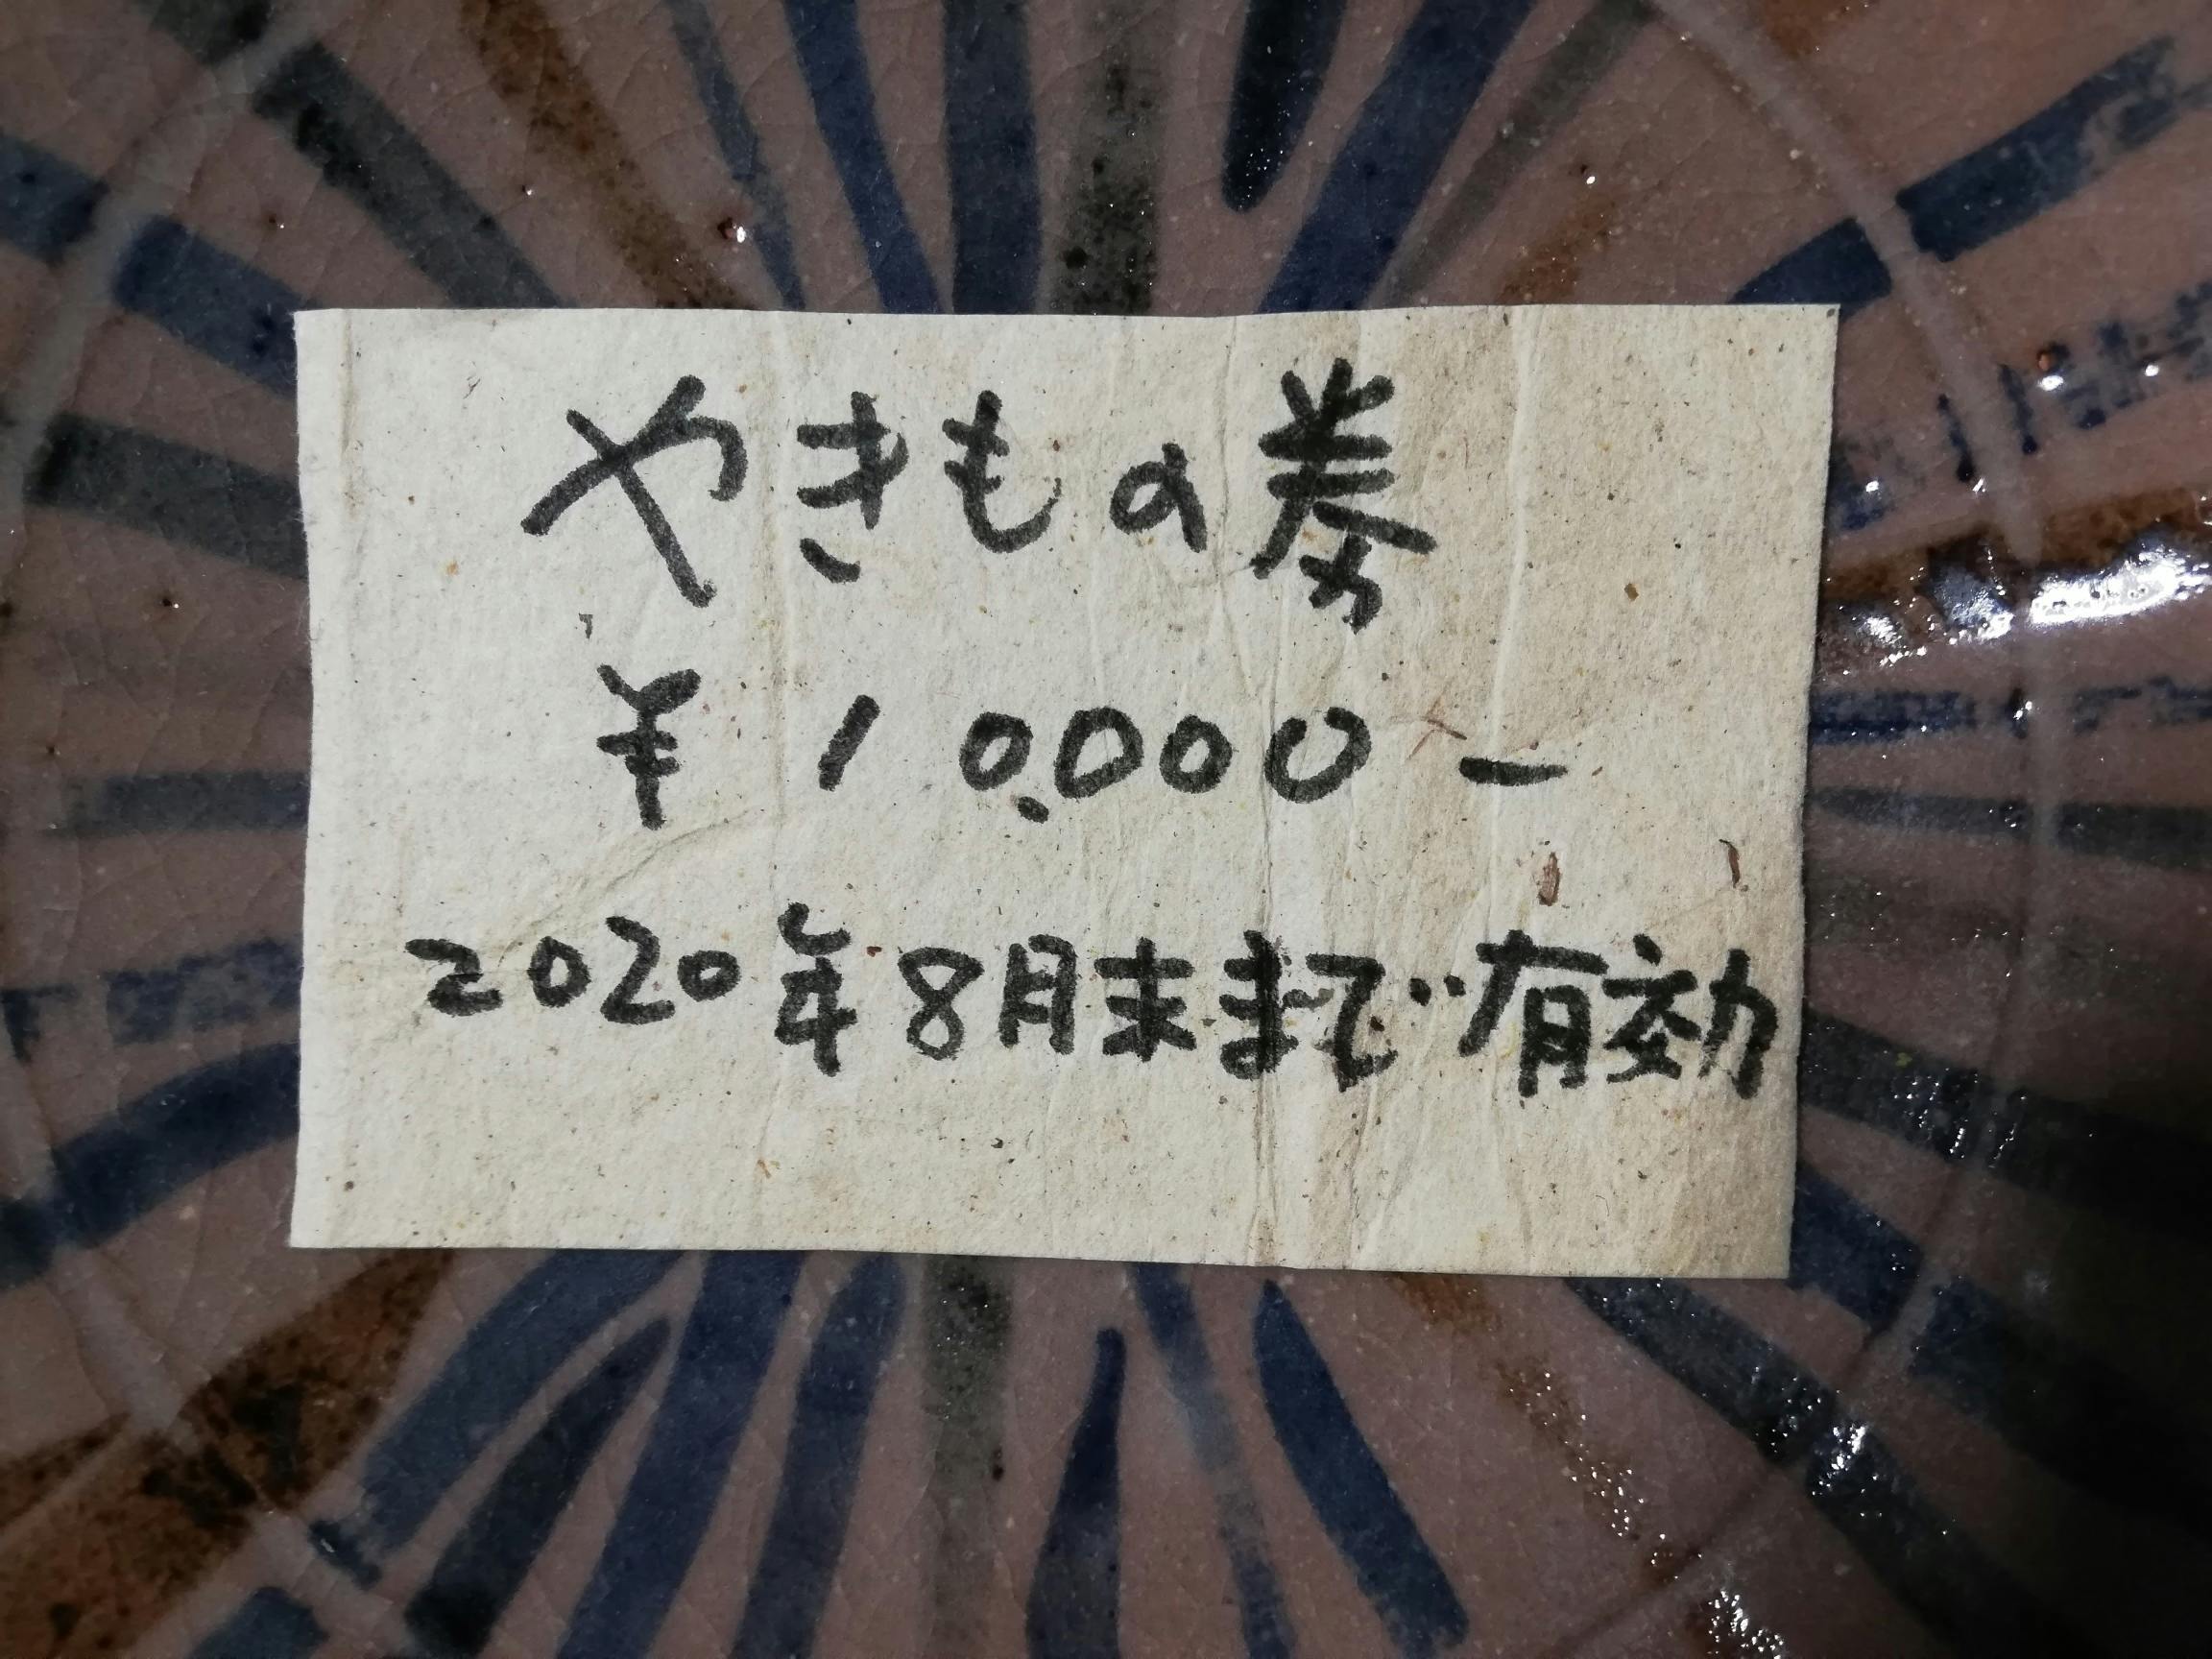 やきもの券
¥10,000-
2020年8月末まで有効